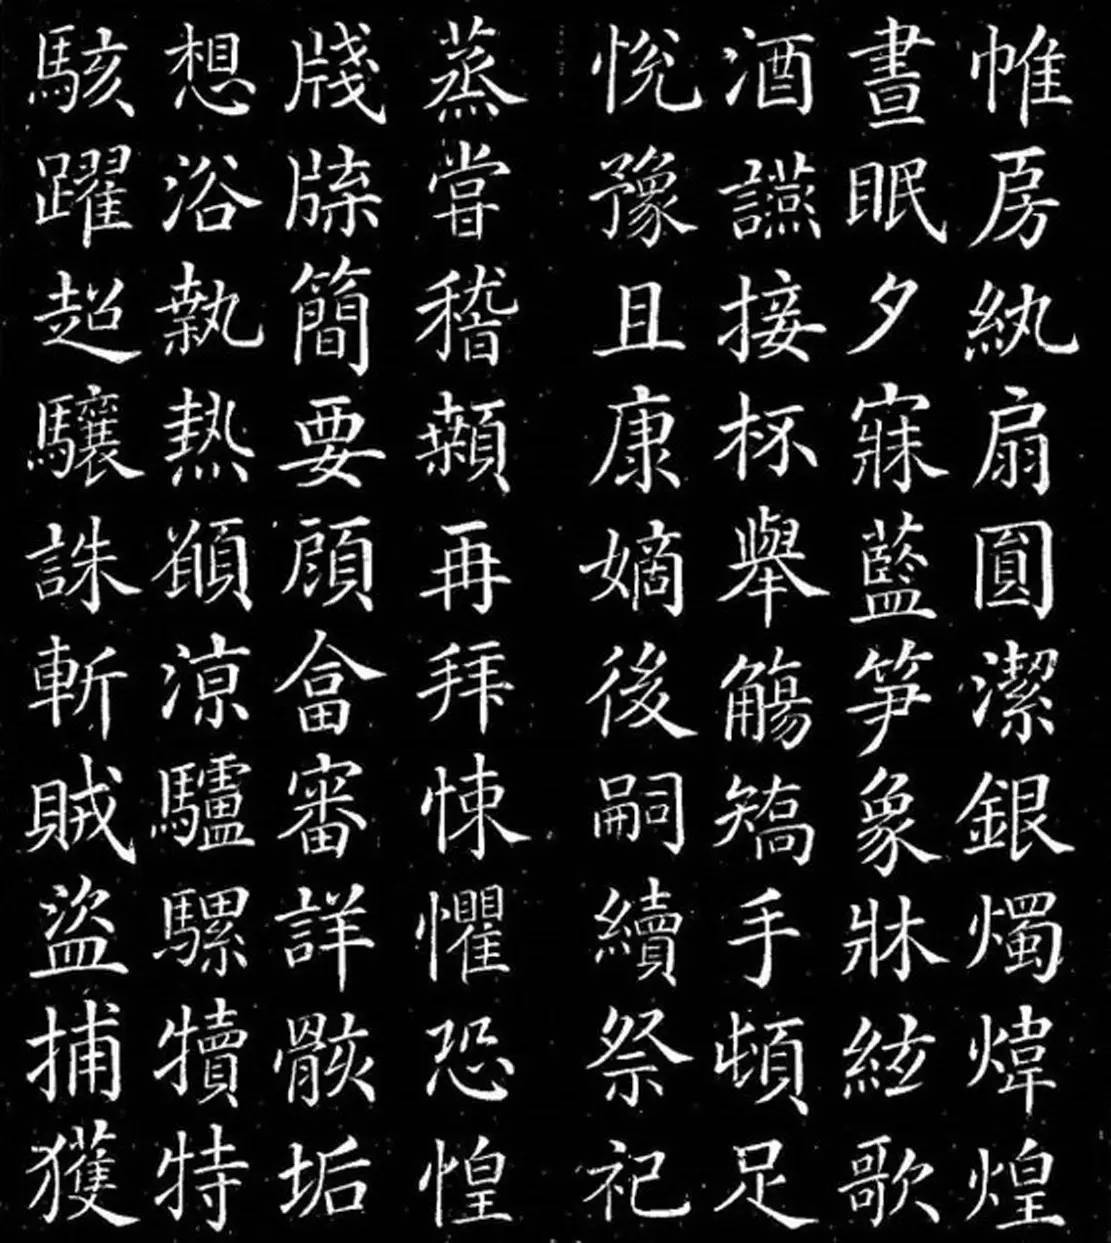 帷房紈扇圓潔銀燭煒煌
晝眠夕寐藍笋象牀絃歌
酒讌接杯舉觴矯手頓足
悅豫且康嫡後嗣續祭祀
蒸嘗稽顙再拜悚懼恐惶
牋牒簡要顧畣審詳骸垢
想浴執熱願涼驢騾犢特
駭躍超驤誅斬賊盜捕獲